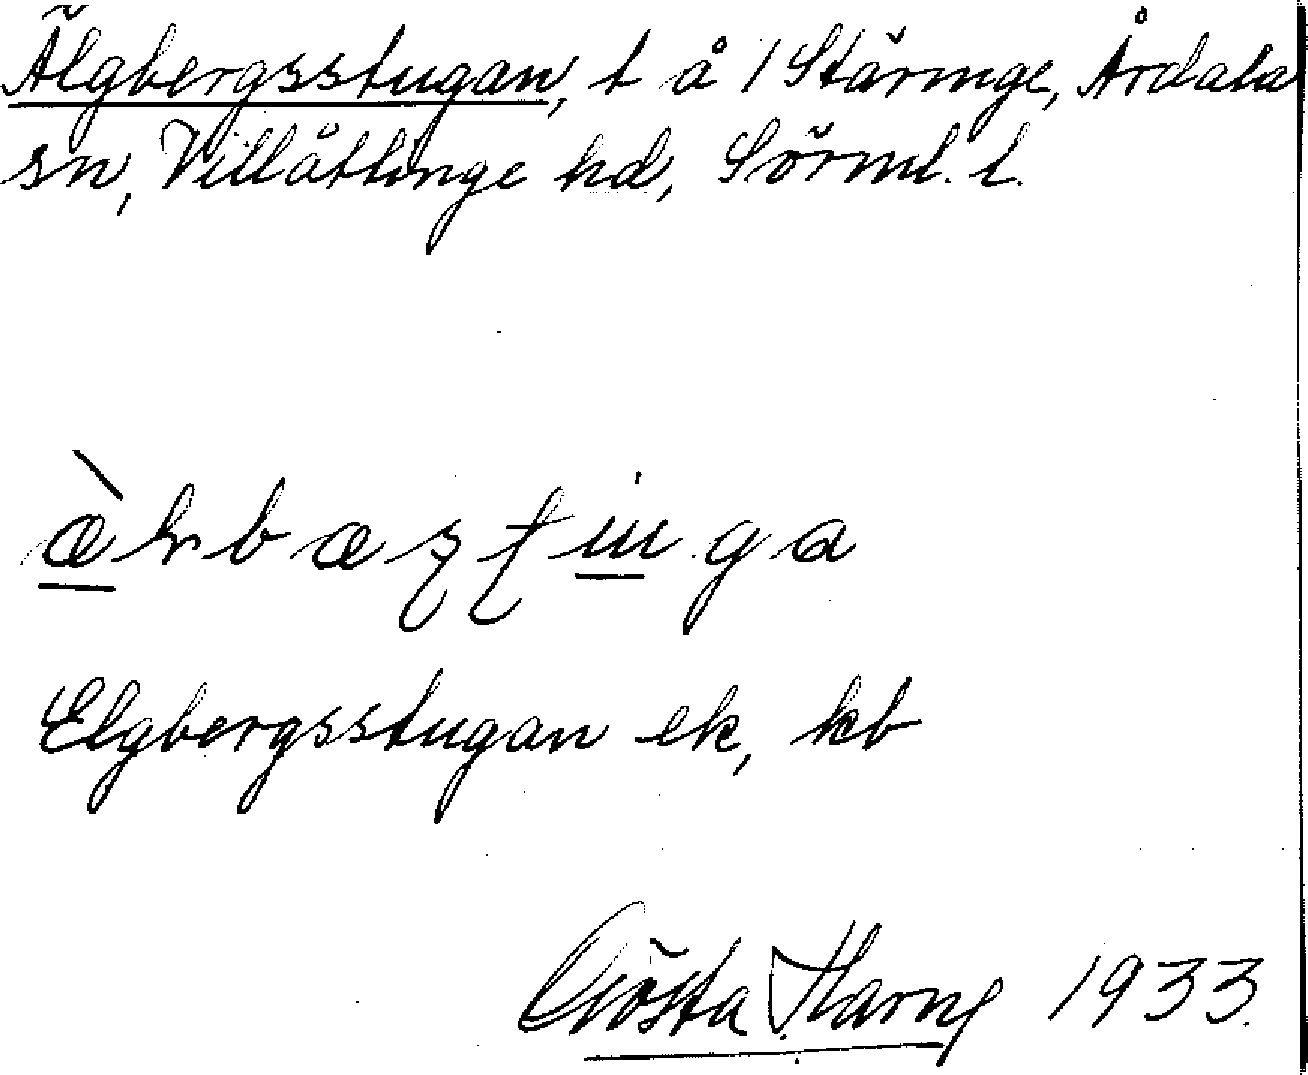 Älgbergsstugan, t å 1 Stäringe, Årdala
sn, Villåttinge hd, Sörml. l.
Elgbergsstugan ek, kb
Gösta Harng 1933.